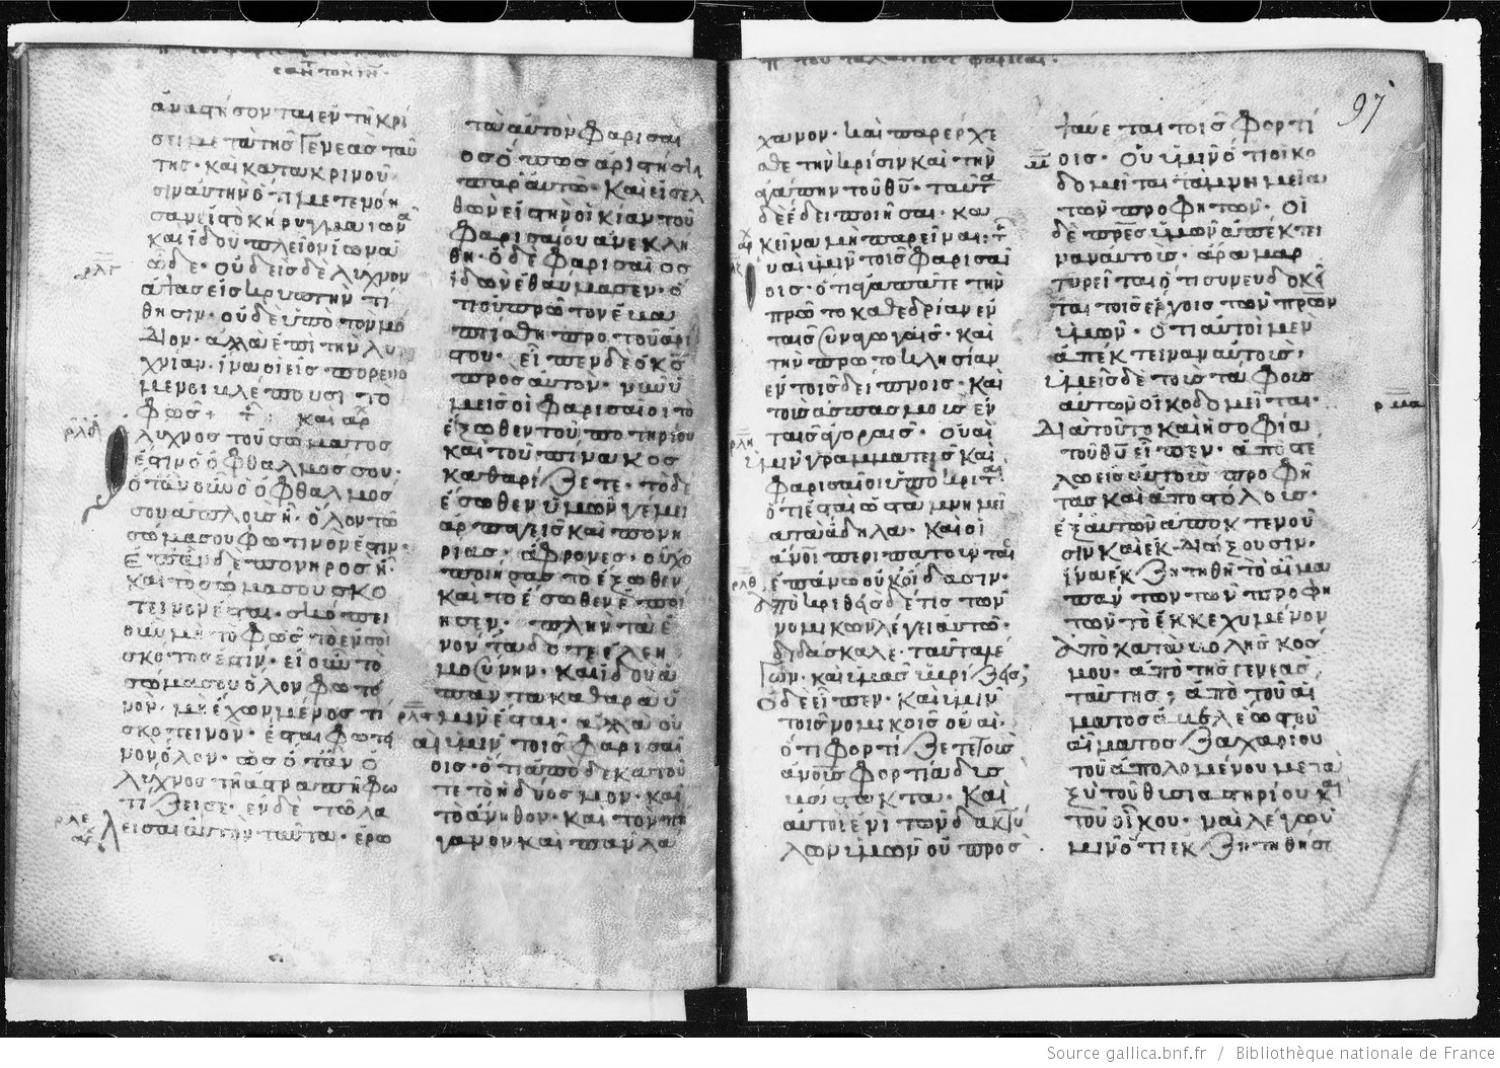 ἀναστήσονται ἐν τῆ κρί
σει μετὰ τῆς γενεᾶς ταύ
της· καὶ κατακρινοῦ
σιν αὐτήν ὅτι μετενόη
σαν εἰς τὸ κήρυγμα ἰωνᾶ
καὶ ἰδοὺ πλεῖον ἰωνᾶ
ὧδε· οὐδεὶς δὲ λύχνον
ἅψας εἰς κρυπτὴν τί
θησιν· οὐδὲ ὑπὸ τὸν μό
διον· ἀλλ' ἐπὶ τὴν λυ
χνίαν· ἵνα οἱ εἰσπορευό
μενοι βλέπουσι τὸ
φῶς +
λύχνος τοῦ σώματος
ἐστιν ὁ ὀφθαλμός σου·
ὅταν οὖν ὁ ὀφθαλμός
σου ἁπλοῦς ἦ· ὅλον τὸ
σῶμα σου φωτινόν ἐστιν·
ἐπὰν δὲ πονηρὸς ἦ·
καὶ τὸ σῶμα σου σκο
τεινόν ἔσται· σκόπει
οὖν μὴ τὸ φῶς τὸ ἐν σοὶ
σκότος ἐστίν· εἰ οὖν τὸ
σῶμα σου ὅλον φωτό
νόν· μὴ ἔχων μέρος τί
σκοτεινόν· ἔσται φωτει
νὸν ὅλον· ὡς ὅταν ὁ
λύχνος τῆ ἀστραπῆ φω
τίζει σε· ἐν δὲ τῶ λα
λεῖσαι αὐτὸν ταῦτα· ἐρω
τᾶ αὐτὸν φαρισαῖ
ος ὅπως ἀριστήσει
παρ' αὐτῶ· καὶ εἰσελ
θὼν εἰς τὴν οἰκίαν τοῦ
φαρισαίου ἀνεκλή
θη· ὁ δὲ φαρισαῖος
ἰδὼν ἐθαύμασεν· ὅ
τι οὐ πρῶτον ἐβα
πτίσθη πρὸ τοῦ ἀρί
στου· εἶπεν δὲ ὁ κς
πρὸς αὐτὸν· νῦν ὑ
μεῖς οἱ φαρισαῖοι τὸ
ἔξωθεν τοῦ ποτηρίου
καὶ τοῦ πίνακος
καθαρίζετε· τὸ δὲ
ἔσωθεν ὑμῶν γέμει
ἁρπαγεῖς καὶ πονη
ρίας· ἄφρονες· οὐχ ὁ
ποιήσας τὸ ἔξωθεν
καὶ τὸ ἔσωθεν ἐποί
ησεν· πλὴν τὰ ἐ
νόντα δότε ἐλεη
μοσύνην· καὶ ἰδοὺ ἅ
παντα καθαρὰ ὑ
μῖν ἔσται· ἀλλὰ οὐ
αὶ ὑμῖν τοῖς φαρισαί
οις· ὅτι ἀποδεκατοῦ
τε τὸ ἡδύοσμον· καὶ
τὸ ἄνηθον· καὶ τὸ πή
γανον καὶ πᾶν λά
97
χανον· καὶ παρέρχε
σθε τὴν κρίσιν καὶ τὴν
ἀγάπην τοῦ θυ· ταῦτα
δὲ ἔδει ποιῆσαι· κἀ
κεῖνα μὴ παρεῖναι·
οὐαὶ ὑμῖν τοῖς φαρισαί
οις· ὅτι ἀγαπᾶτε τὴν
πρωτοκαθεδρίαν ἐν
ταῖς συναγωγαῖς· καὶ
τὴν πρωτοκλησίαν
ἐν τοῖς δείπνοις· καὶ
τοὺς ἀσπασμοὺς ἐν
ταῖς ἀγοραῖς· οὐαὶ
ὑμῖν γραμματεῖς καὶ
φαρισαῖοι ὑποκριταὶ
ὅτι ἐσταὶ ὡς τὰ μνημεῖ
α τὰ ἄδηλα· καὶ οἱ
ἄνοι περιπατοῦνται
ἐπάνω οὐκ οἴδασιν·
Ἀποκριθεὶς δέ τις τῶν
νομικῶν λέγει αὐτῶ·
διδάσκαλε· ταῦτα λέ
γων· καὶ ἡμᾶς ὑβρίζεις;
Ὁ δὲ εἶπεν· καὶ ὑμῖν
τοῖς νομικοῖς οὐαὶ·
ὅτι φορτίζετε τοὺς
ἀνους φορτία δυσ
βάστακτα· καὶ
αὐτοὶ ἑνὶ τῶν δακτύ
λων ὑμῶν οὐ προσ
ψαύεται τοῖς φορτί
οις· οὐαὶ ὑμῖν ὅτι οἰκο
δομεῖται τὰ μνημεῖα
τῶν προφητῶν· οἱ
δὲ πρες ὑμῶν ἀπέκτει
ναν αὐτούς· ἄρα μαρ
τυρεῖται ὅτι συνευδοκεῖ
ται τοῖς ἔργοις τῶν πρων
ὑμῶν· ὅτι αὐτοὶ μὲν
ἀπέκτειναν αὐτοὺς,
ὑμεῖς δὲ τοὺς τάφους
αὐτῶν οἰκοδομεῖται·
Διὰ τοῦτο καὶ ἡ σοφία
τοῦ θυ εἶπεν· ἀποστε
λῶ εἰς αὐτοὺς προφή
τας καὶ ἀποστόλους·
ἐξ αὐτῶν ἀποκτενοῦ
σιν καὶ ἐκδιώξουσιν·
ἵνα ἐκζητηθῆ τὸ αἷμα
πάντων τῶν προφη
τῶν τὸ ἐκκεχυμένον
ἀπὸ καταβολῆς κόσ
μου· ἀπὸ τῆς γενεᾶς
ταύτης; ἀπὸ τοῦ αἵ
ματος ἄβελ ἕως τοῦ
αἵματος Ζαχαρίου
τοῦ ἀπολομένου μετα
ξὺ τοῦ θυσιαστηρίου καὶ
τοῦ οἴκου· ναὶ λέγω ὑ
μῖν ὅτι ἐκζητηθήσε
Source gallica.bnf.fr / Bibliothèque nationale de France